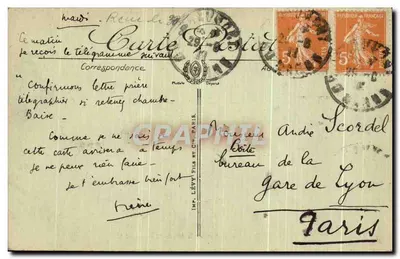 mardi
Ce matin
je reçois le télégramme suivant
Carte Postale
Correspondance
" Confirmons lettre prière
télégraphier si retenez chambre-
Comme je ne sais
cette carte arrivera à temps
je ne peux rien faire -
je t'embrasse bien fort
Monsieur André Scordel
Boîte
bureau de la
Gare de Lyon
Paris
IMP. LÉVY FILS ET Cie PARIS
CPAPHIL
5c 5c